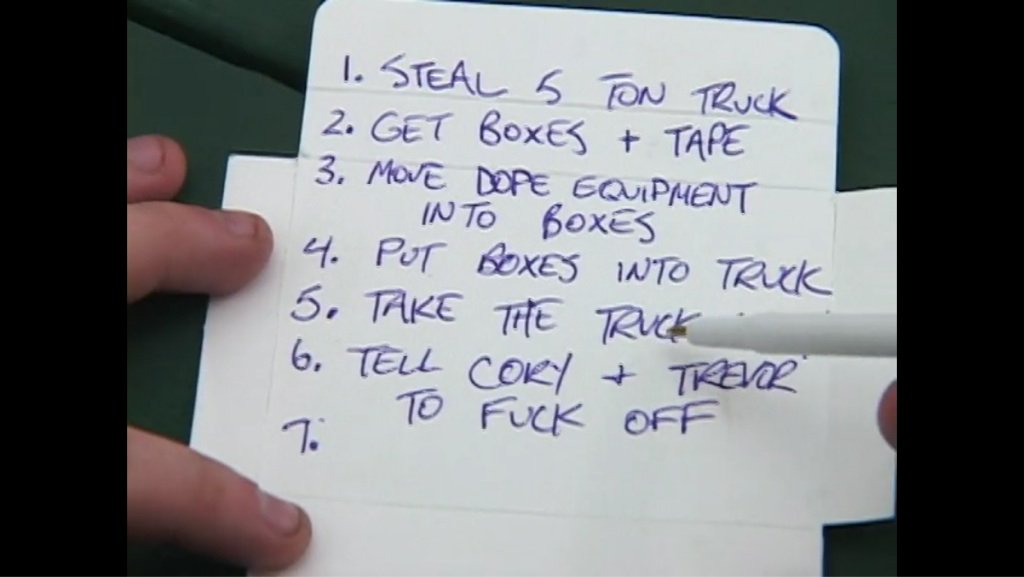 1. STEAL 5 TON TRUCK
2. GET BOXES + TAPE
3. MOVE DOPE EQUIPMENT
INTO BOXES
4. PUT BOXES INTO TRUCK
5. TAKE THE TRUCK
6. TELL CORY + TREVOR
TO FUCK OFF
7.